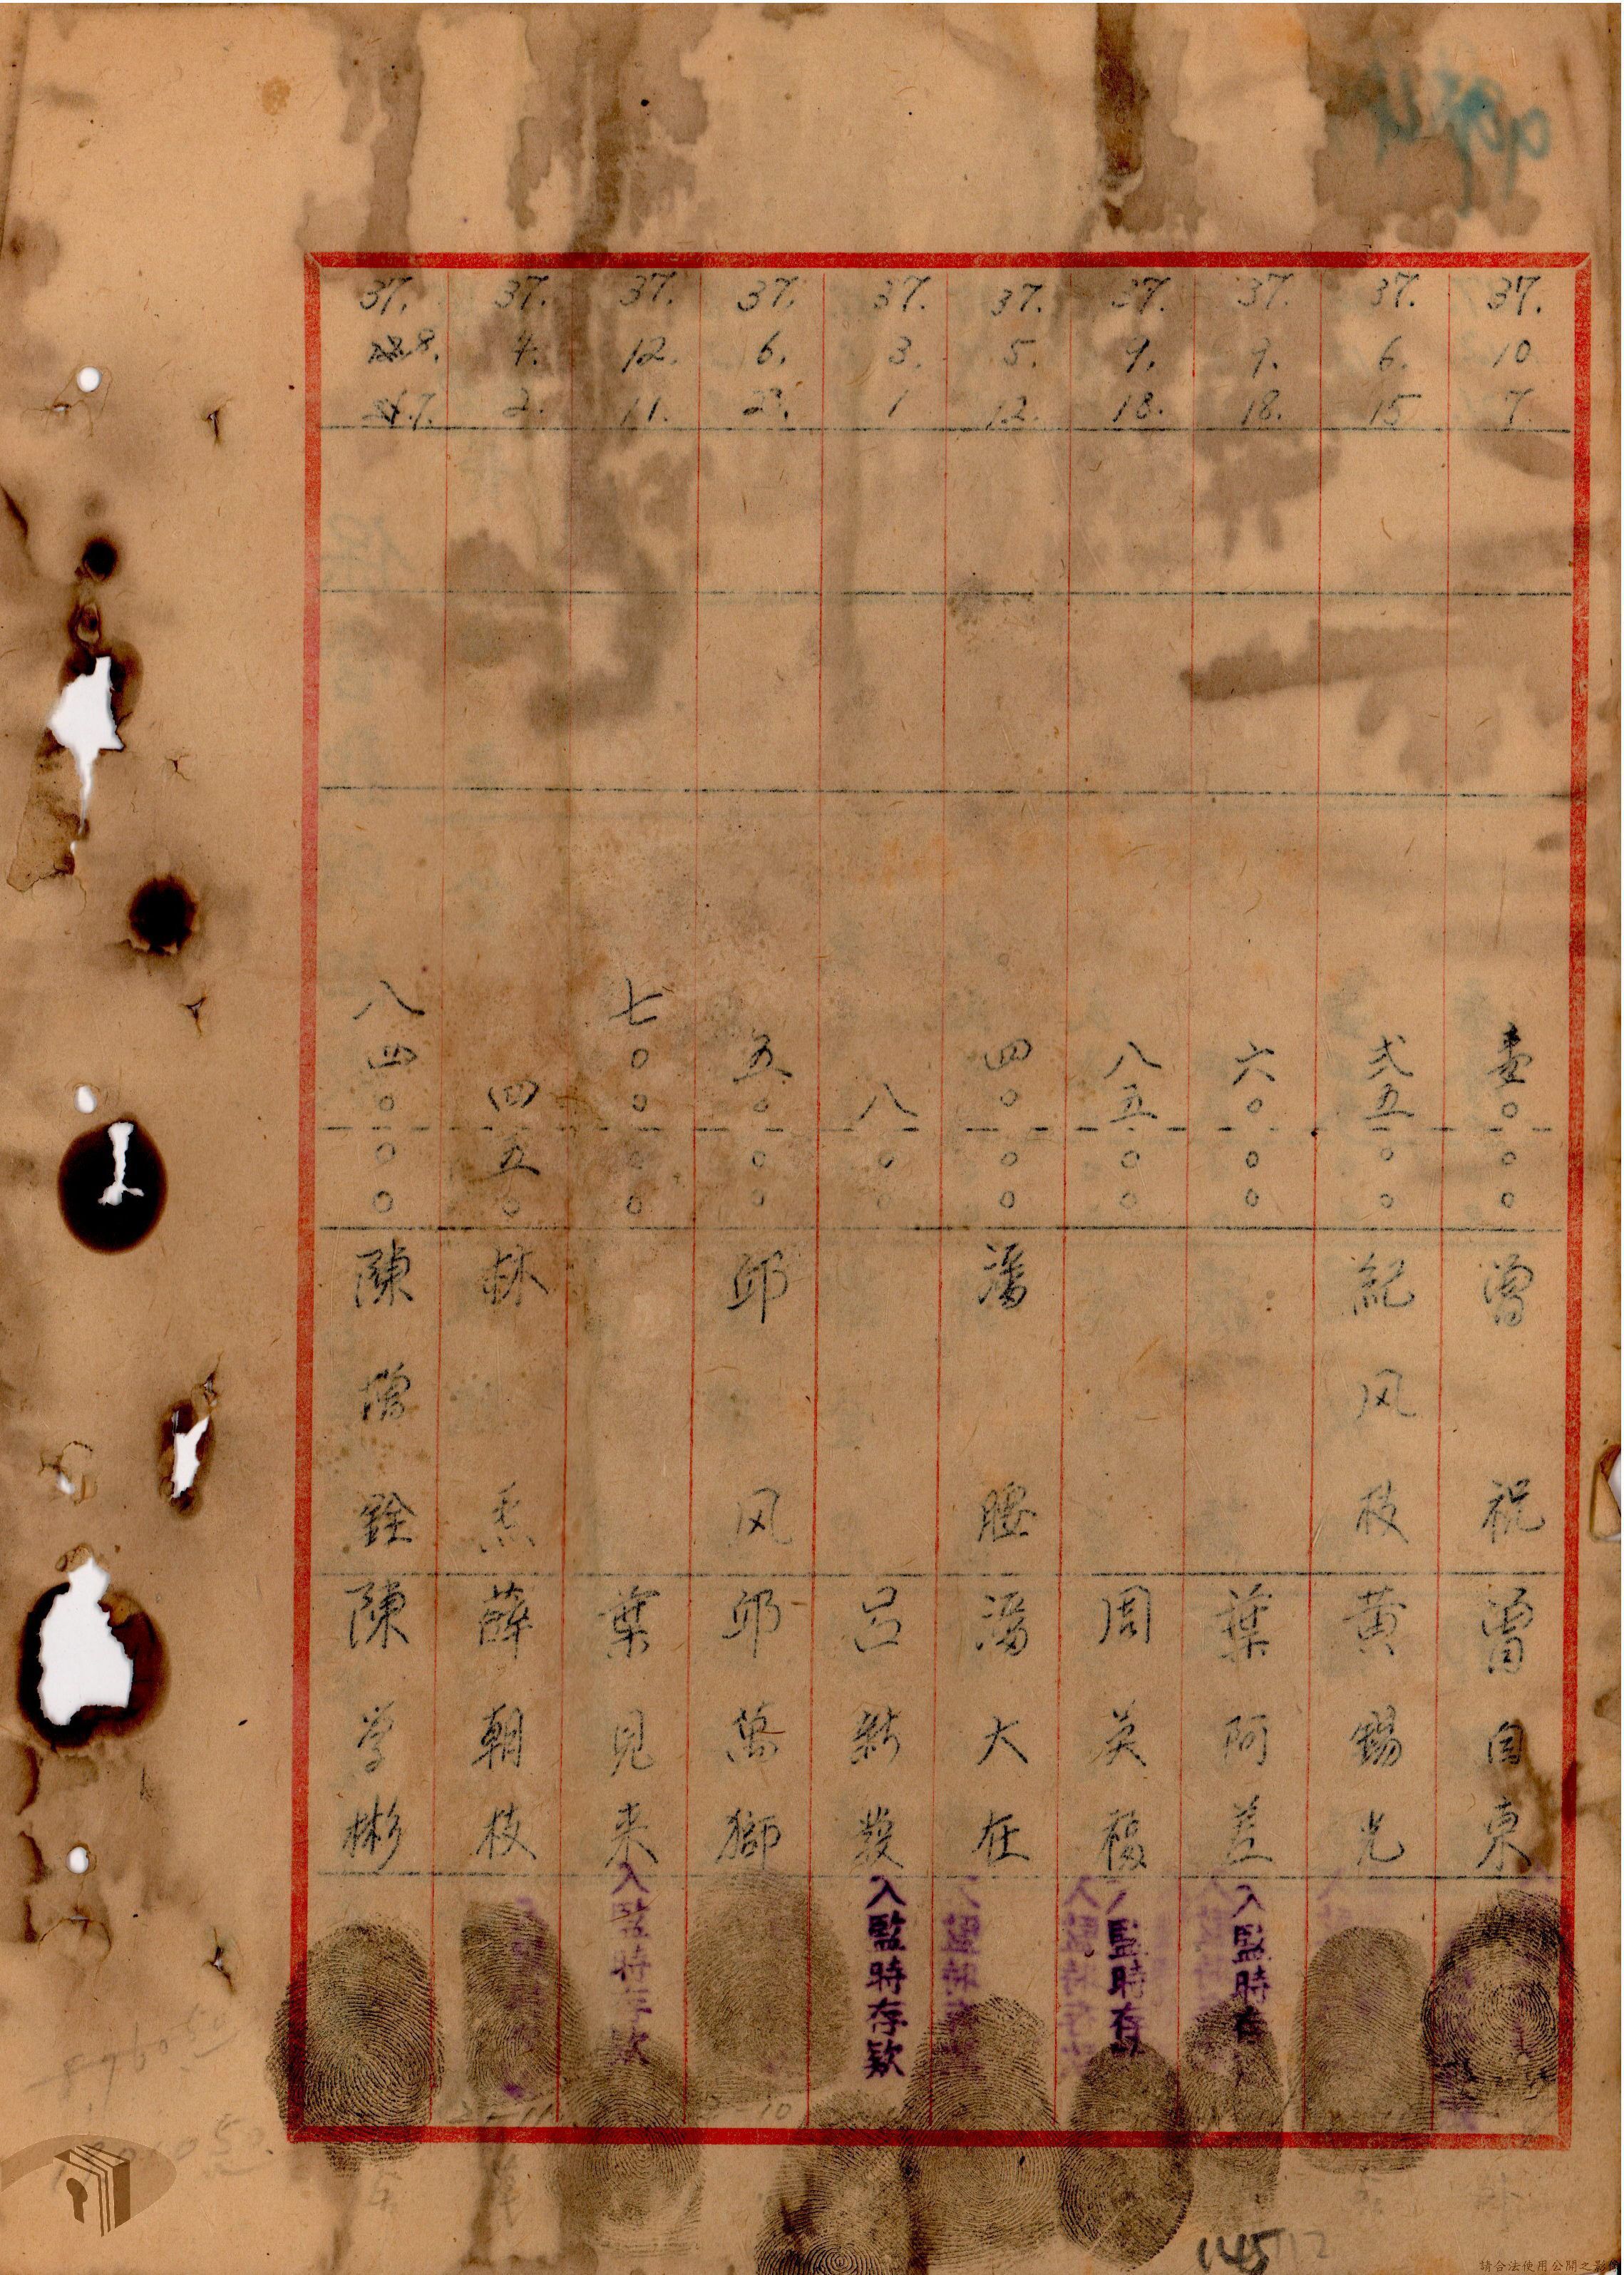 37. 10 7. 壹〇〇〇 曾 祝 曾自東
37. 6. 15 弍五〇〇 紀风枝 黄錫光
37. 9. 18. 六〇〇〇 葉阿差 入監時存
37. 9. 18. 八五〇〇 周英福 入監時存
37. 5. 12. 四〇〇〇 潘腰 潘大在
37. 3. 1 八〇 呂新發 入監時存欵
37. 6. 五〇〇〇 邱风 邱萬獅
37. 12. 11. 七〇〇〇〇 葉見来 入監時存欵
37. 4. 2. 四五〇 林 薛朝枝
37. 8. 7. 八四〇〇〇 陳 銓 陳学彬
145
請合法使用公開之影像